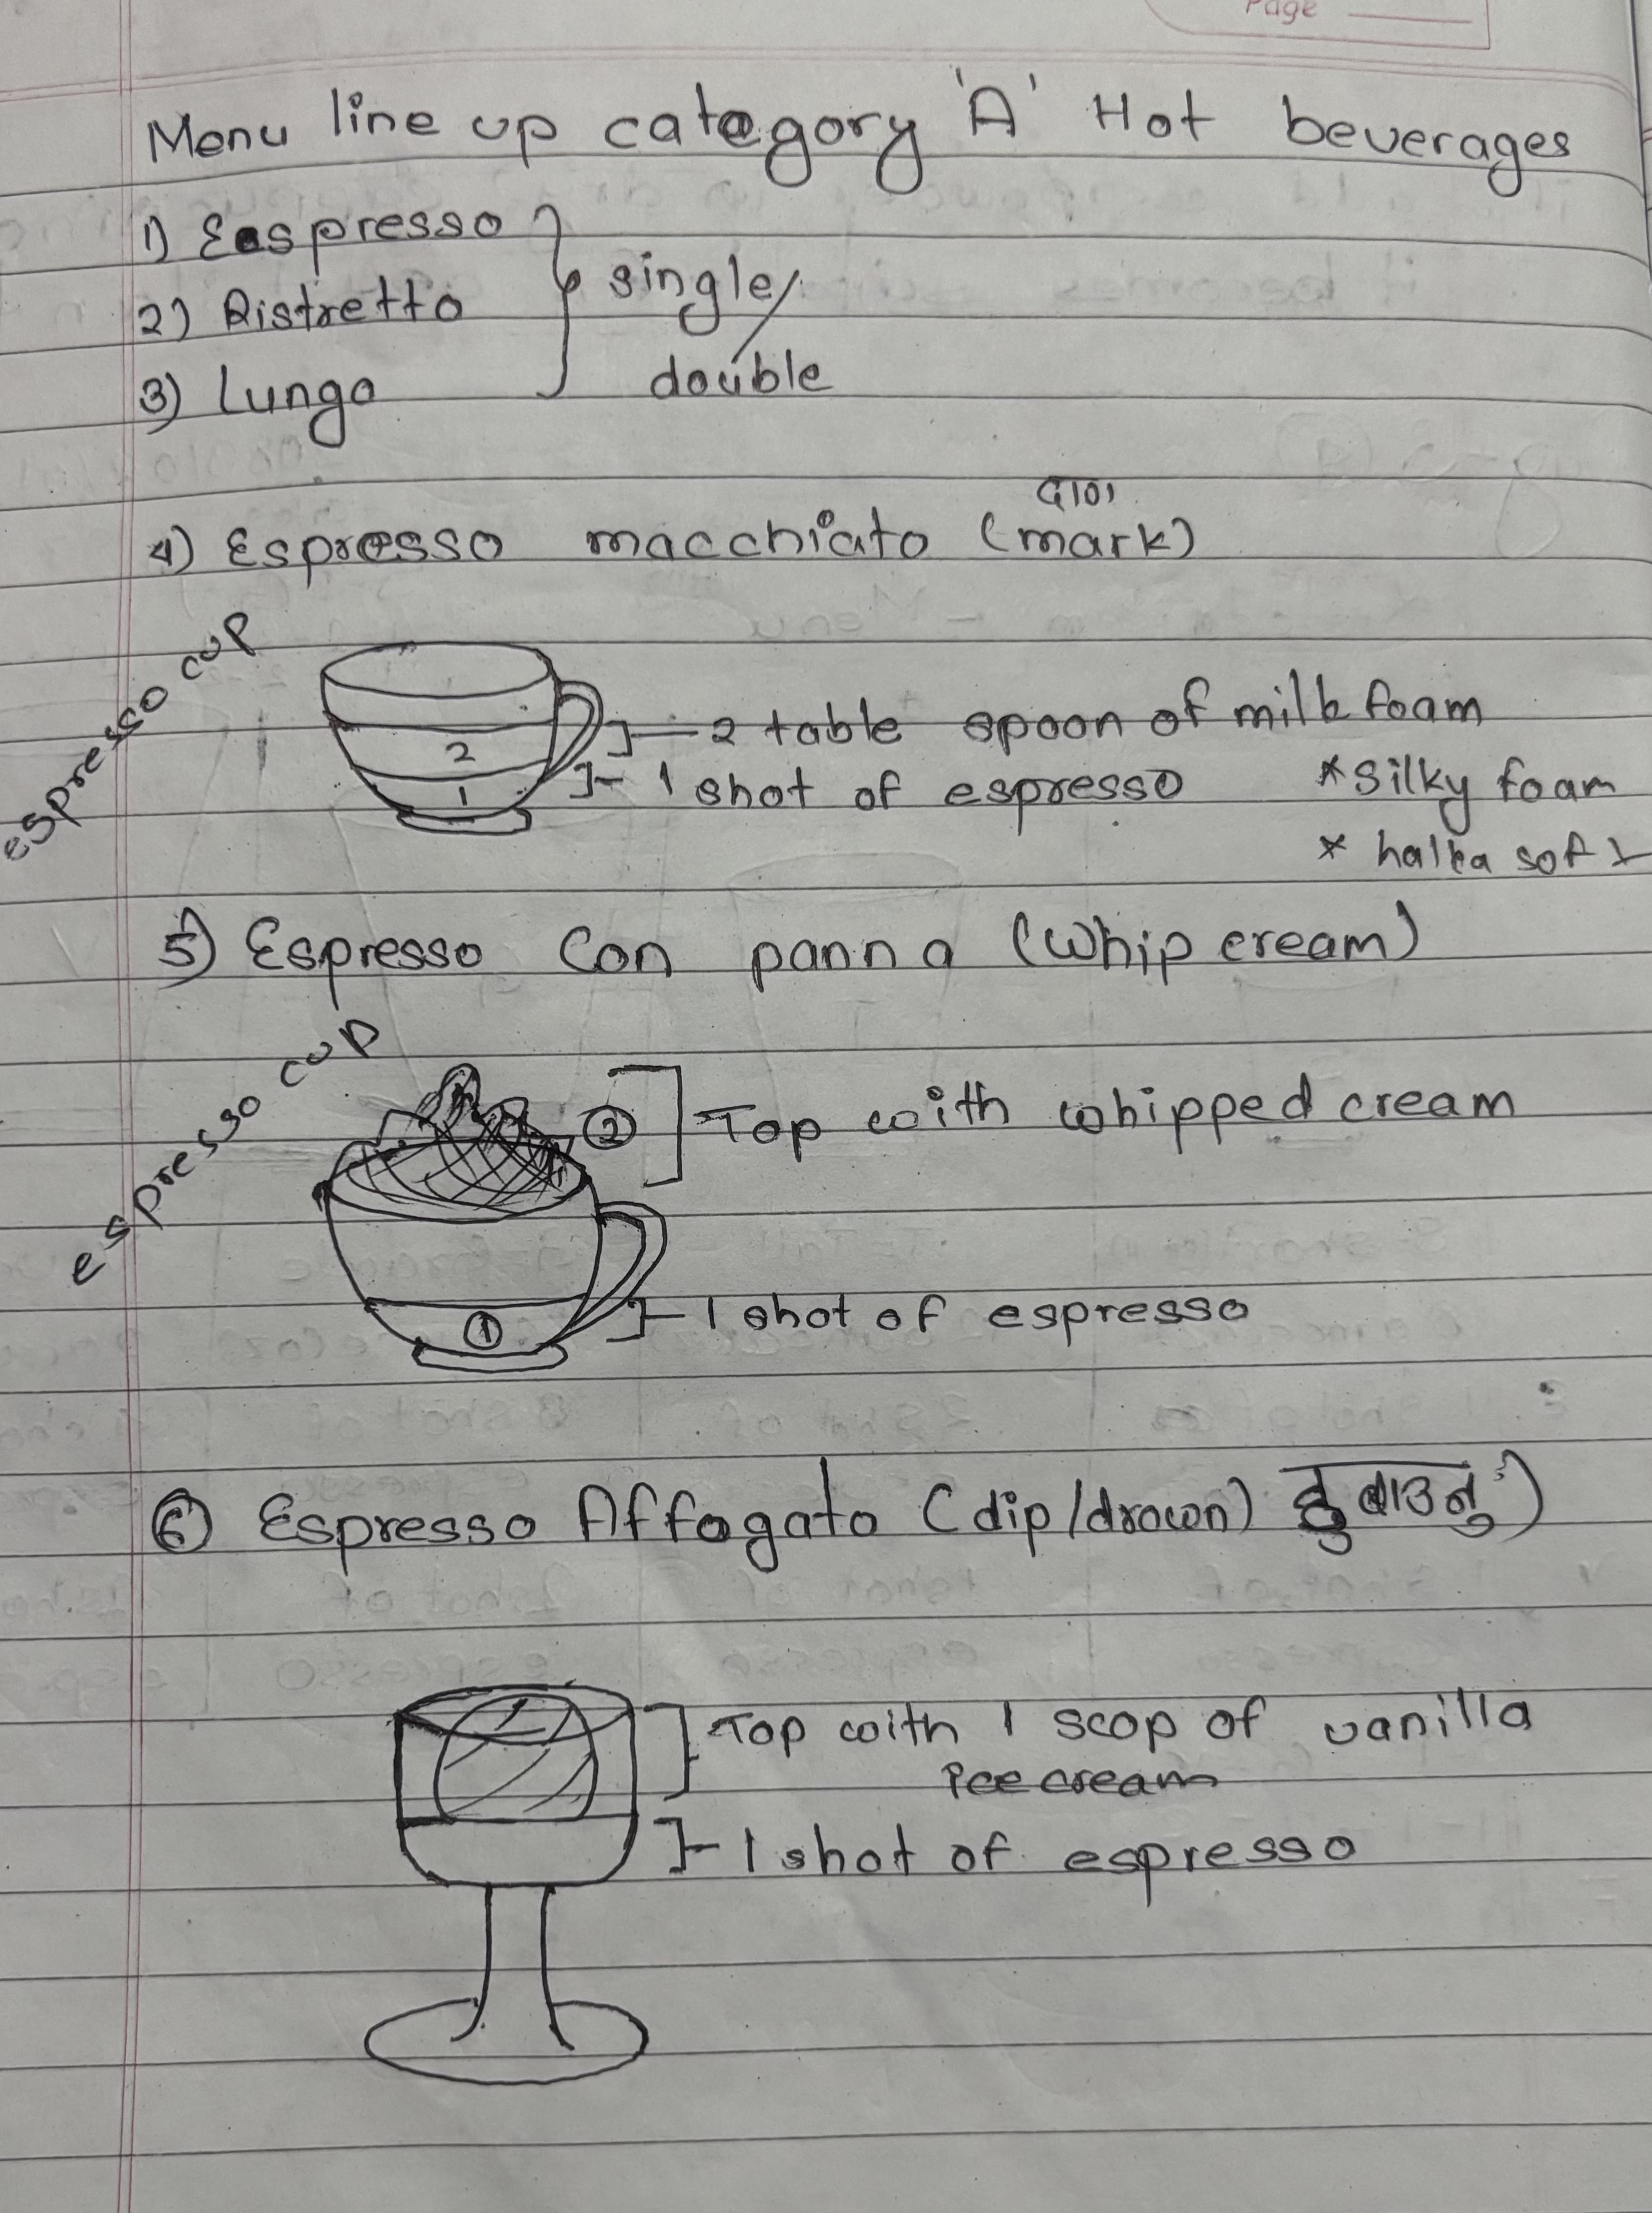 Page
Menu line up category 'A' Hot beverages
1) Easpresso
2) Ristretto
3) Lungo
single/
double
4) Espresso macchiato (mark)
espresso cup
2
1
2 table spoon of milk foam
1 shot of espresso
* silky foam
* halka soft
5) Espresso Con panna (whip cream)
espresso cup
2
Top with whipped cream
1
1 shot of espresso
6) Espresso Affogato (dip/drown) डुबाउनु)
Top with 1 scop of vanilla
ice cream
1 shot of espresso